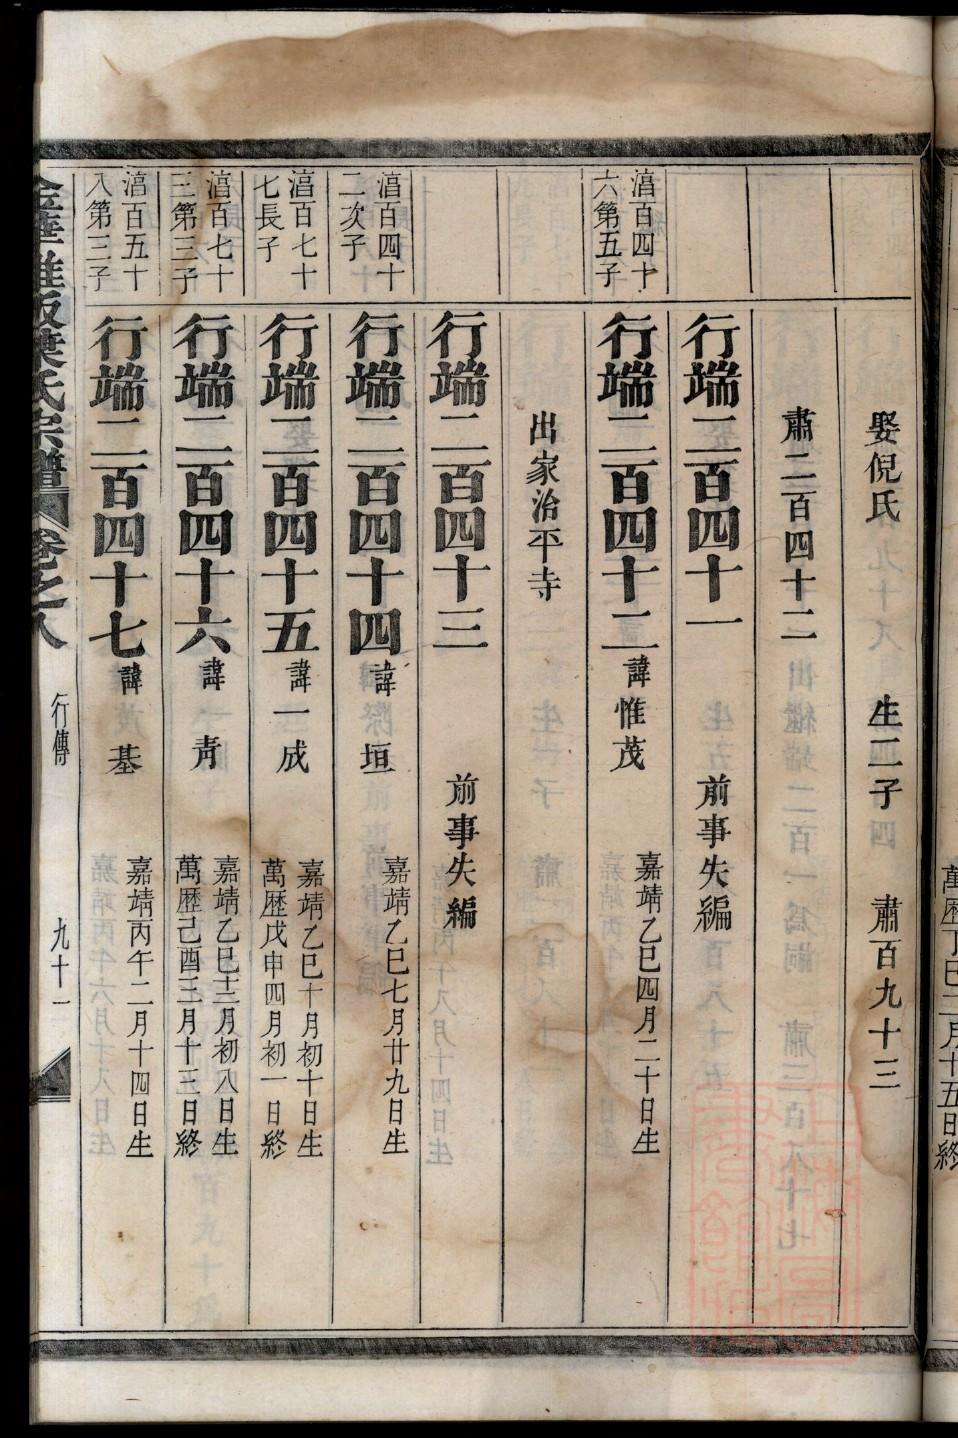 娶倪氏
生二子四
肅百九十三
肅二百四十二
行端二百四十一
前事失編
湻百四十
六第五子
行端二百四十二
諱惟茂
嘉靖乙巳四月二十日生
出家治平寺
行端二百四十三
前事失編
湻百四十
二次子
行端二百四十四
諱垣
嘉靖乙巳七月廿九日生
湻百七十
七長子
行端二百四十五
諱一成
嘉靖乙巳十月初十日生
萬歷戊申四月初一日終
湻百七十
三第三子
行端二百四十六
諱青
嘉靖乙巳十二月初八日生
萬歷己酉三月十三日終
湻百五十
八第三子
行端二百四十七
諱基
嘉靖丙午二月十四日生
葉氏宗譜
卷之八
行傳
九十一